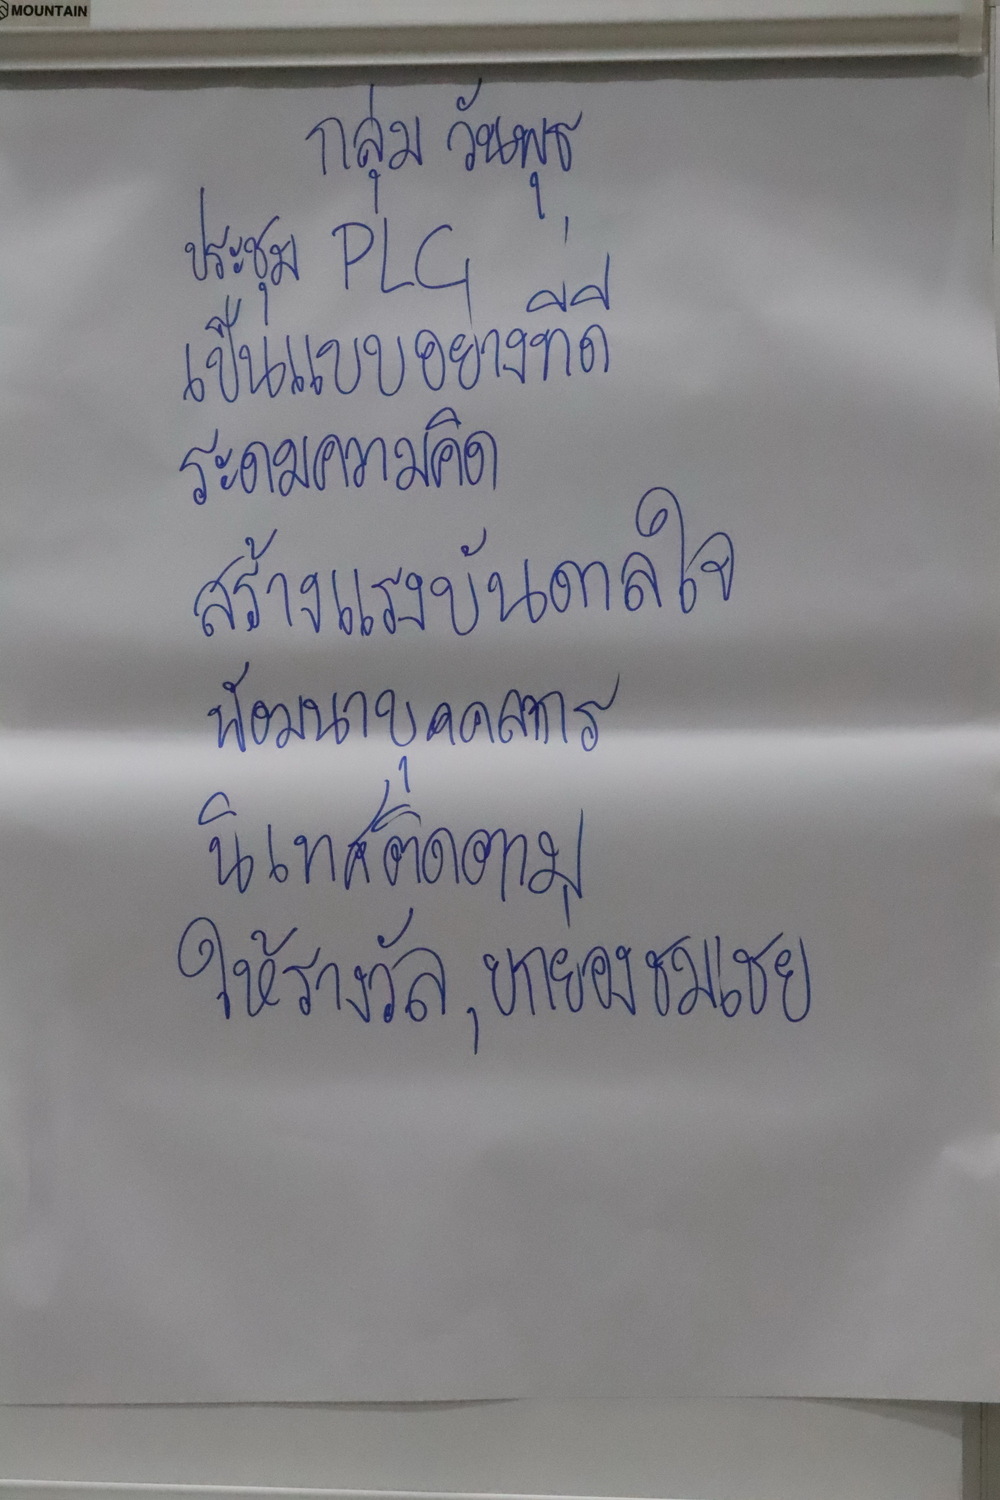 MOUNTAIN
กลุ่ม วันพุธ
ประชุม PLC
เป็นแบบอย่างที่ดี
ระดมความคิด
สร้างแรงบันดาลใจ
พัฒนาบุคคลากร
นิเทศติดตาม
ให้รางวัล , ยกย่องชมเชย